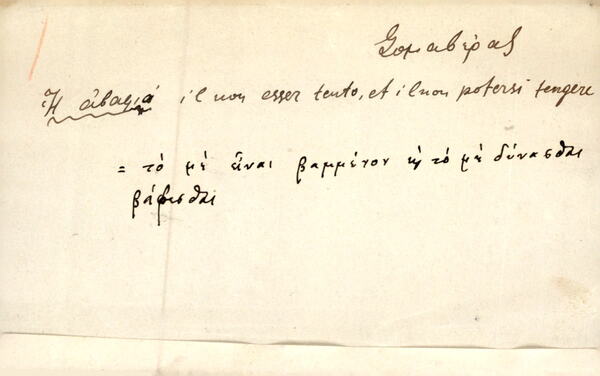 Σομαβέρας
Ἡ ἀβαφιά il non esser tento, et il non potersi tengere
= τὸ μὲ εἶναι βαμμένον ἢ τὸ μὲ δύνασθαι
βάφεσθαι